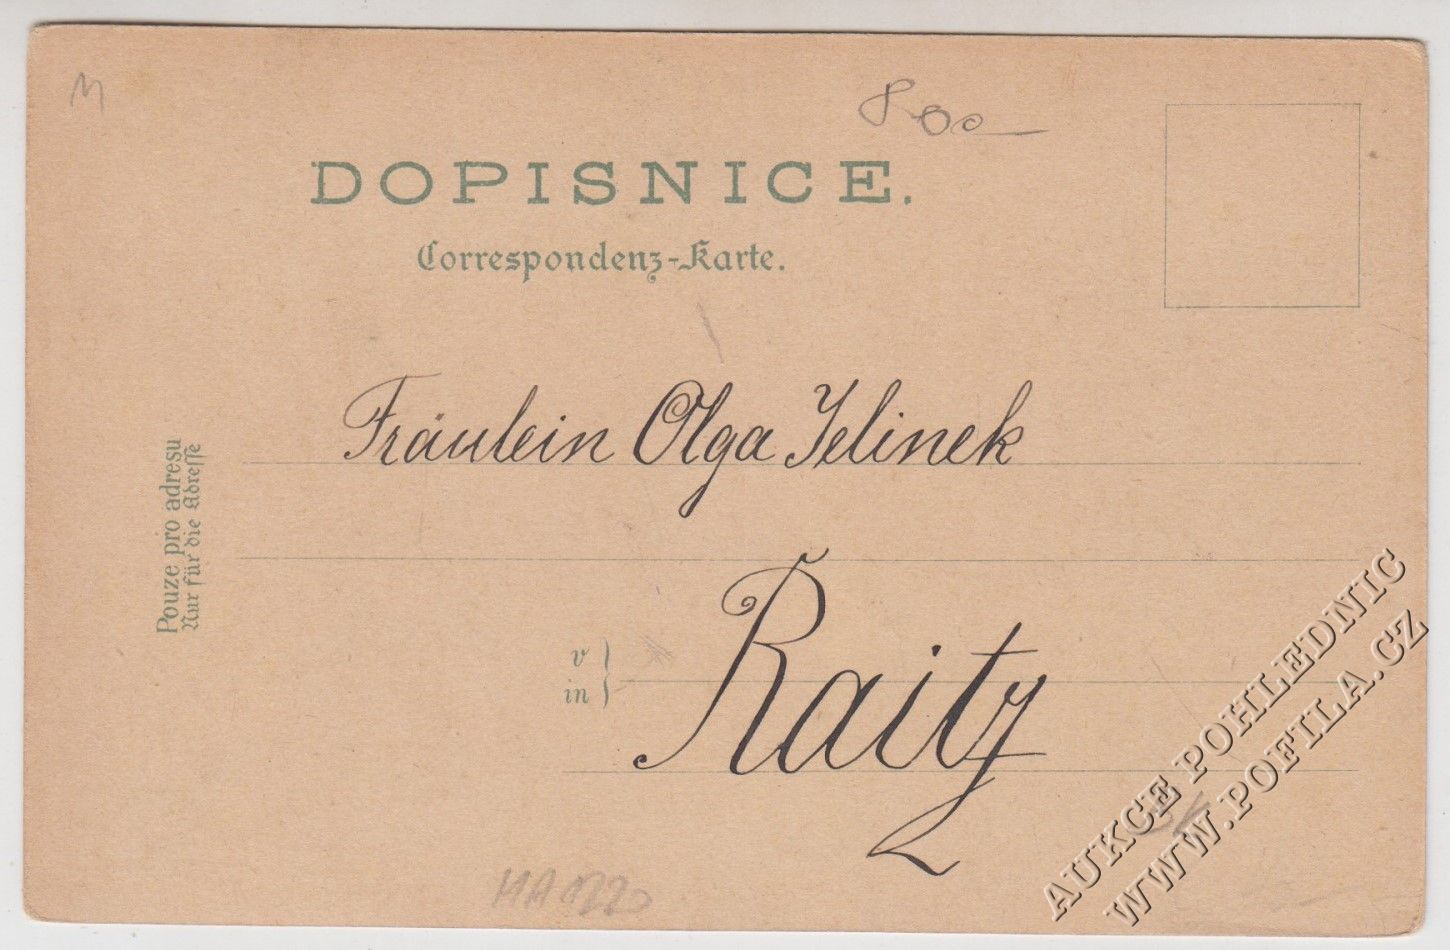 M
800-
DOPISNICE.
Correspondenz-Karte.
Fräulein Olga Jelinek
Pouze pro adresu
Nur für die Adresse
v
in
Raitz
AUKCE POHLEDNIC
WWW.POFILA.CZ